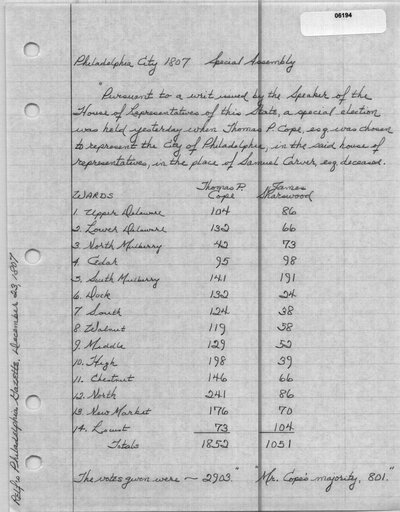 06194
Philadelphia City 1807 Special Assembly
"Pursuant to a writ issued by the Speaker of the
House of Representatives of this State, a special election
was held yesterday when Thomas P. Cope, esq was chosen
to represent the City of Philadelphia, in the said house of
representatives, in the place of Samuel Carver, esq deceased.
WARDS Thomas P. Cope James Sharswood
1. Upper Delaware 104 86
2. Lower Delaware 132 66
3. North Mulberry 42 73
4. Cedar 95 98
5. South Mulberry 141 191
6. Dock 132 24
7 South 124 38
8. Walnut 119 38
9. Middle 129 52
10. High 198 39
11. Chestnut 146 66
12. North 241 86
13. New Market 176 70
14. Locust 73 104
Totals 1852 1051
The votes given were - 2903." "Mr. Cope's majority, 801."
Relf's Philadelphia Gazette, December 23, 1807